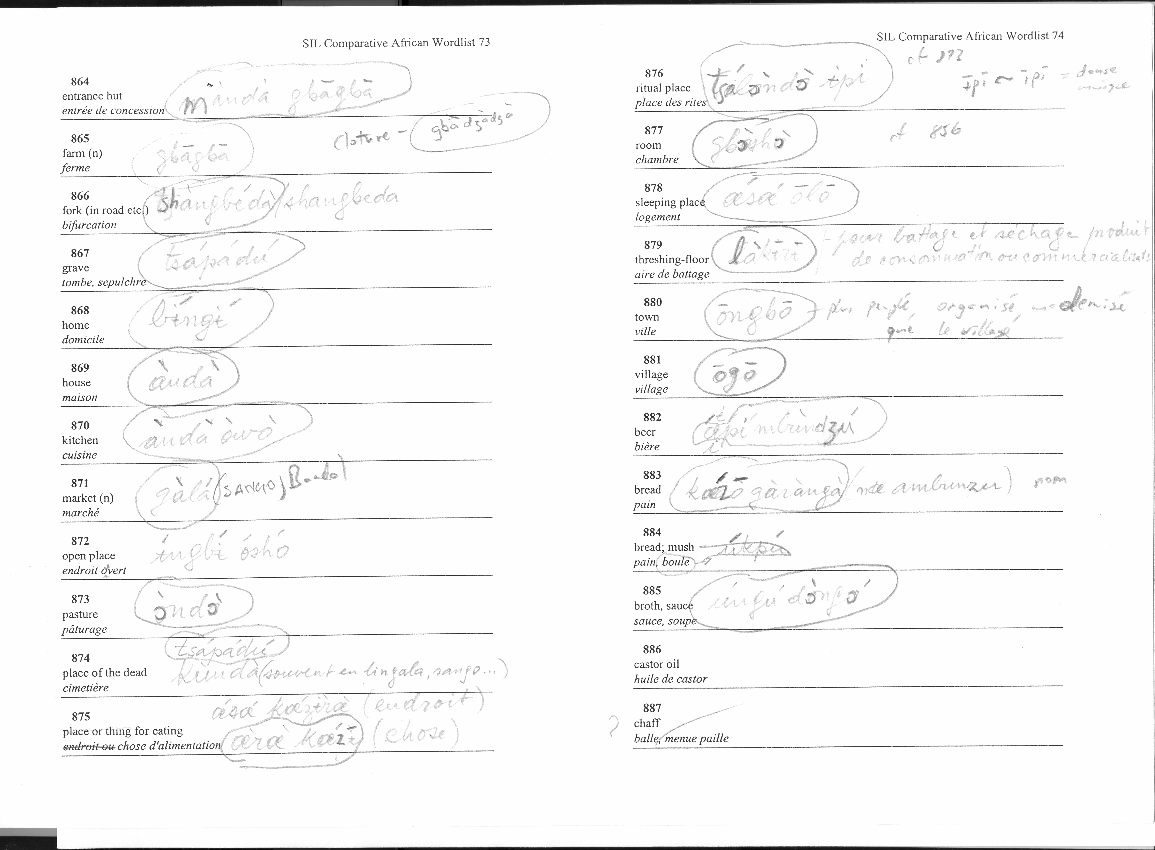 SIL Comparative African Wordlist 73
864
entrance hut
entrée de concession
màndà gbāgbā
865
farm (n)
ferme
gbāgbā
cloture – gbàdzàdzà
866
fork (in road etc.)
bifurcation
shàngbédà/shangbeda
867
grave
tombe, sepulchre
tsápádú
868
home
domicile
869
house
maison
àndà
870
kitchen
cuisine
àndà òwò
871
market (n)
marché
gàlá (SANGO, Banda)
872
open place
endroit overt
íngbí óshó
873
pasture
pâturage
ɔ̀ndɔ̀
874
place of the dead
cimetière
tsápádú
kùndà (souvent en lingala, sango...)
875
place or thing for eating
endroit ou chose d'alimentation
(endroit)
(chose)
SIL Comparative African Wordlist 74
876
ritual place
place des rites
cf 892
= danse
877
room
chambre
cf 856
878
sleeping place
logement
ásá ōlō
879
threshing-floor
aire de battage
– pour battage et séchage produit
de consommation ou commercialisat.
880
town
ville
ōngbō
+ plus peuplé, organisé, modernisé
que le village
881
village
village
ōgō
882
beer
bière
883
bread
pain
gàràngà
nom
884
bread; mush
pain, boule
885
broth, sauce
sauce, soupe
886
castor oil
huile de castor
887
chaff
balle, menue paille
?